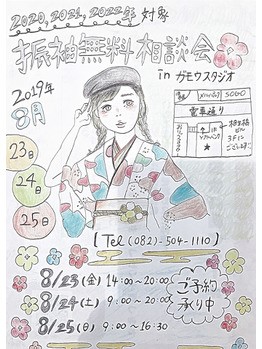 2020, 2021, 2022年 対象
振袖無料相談会
in ガモウスタジオ
2019年
8月
23日
24日
25日
SOGO
電車通り
★
【Tel (082)-504-1110】
8/23(金) 14:00～20:00
8/24(土) 9:00～20:00
8/25(日) 9:00～16:30
ご予約
承り中